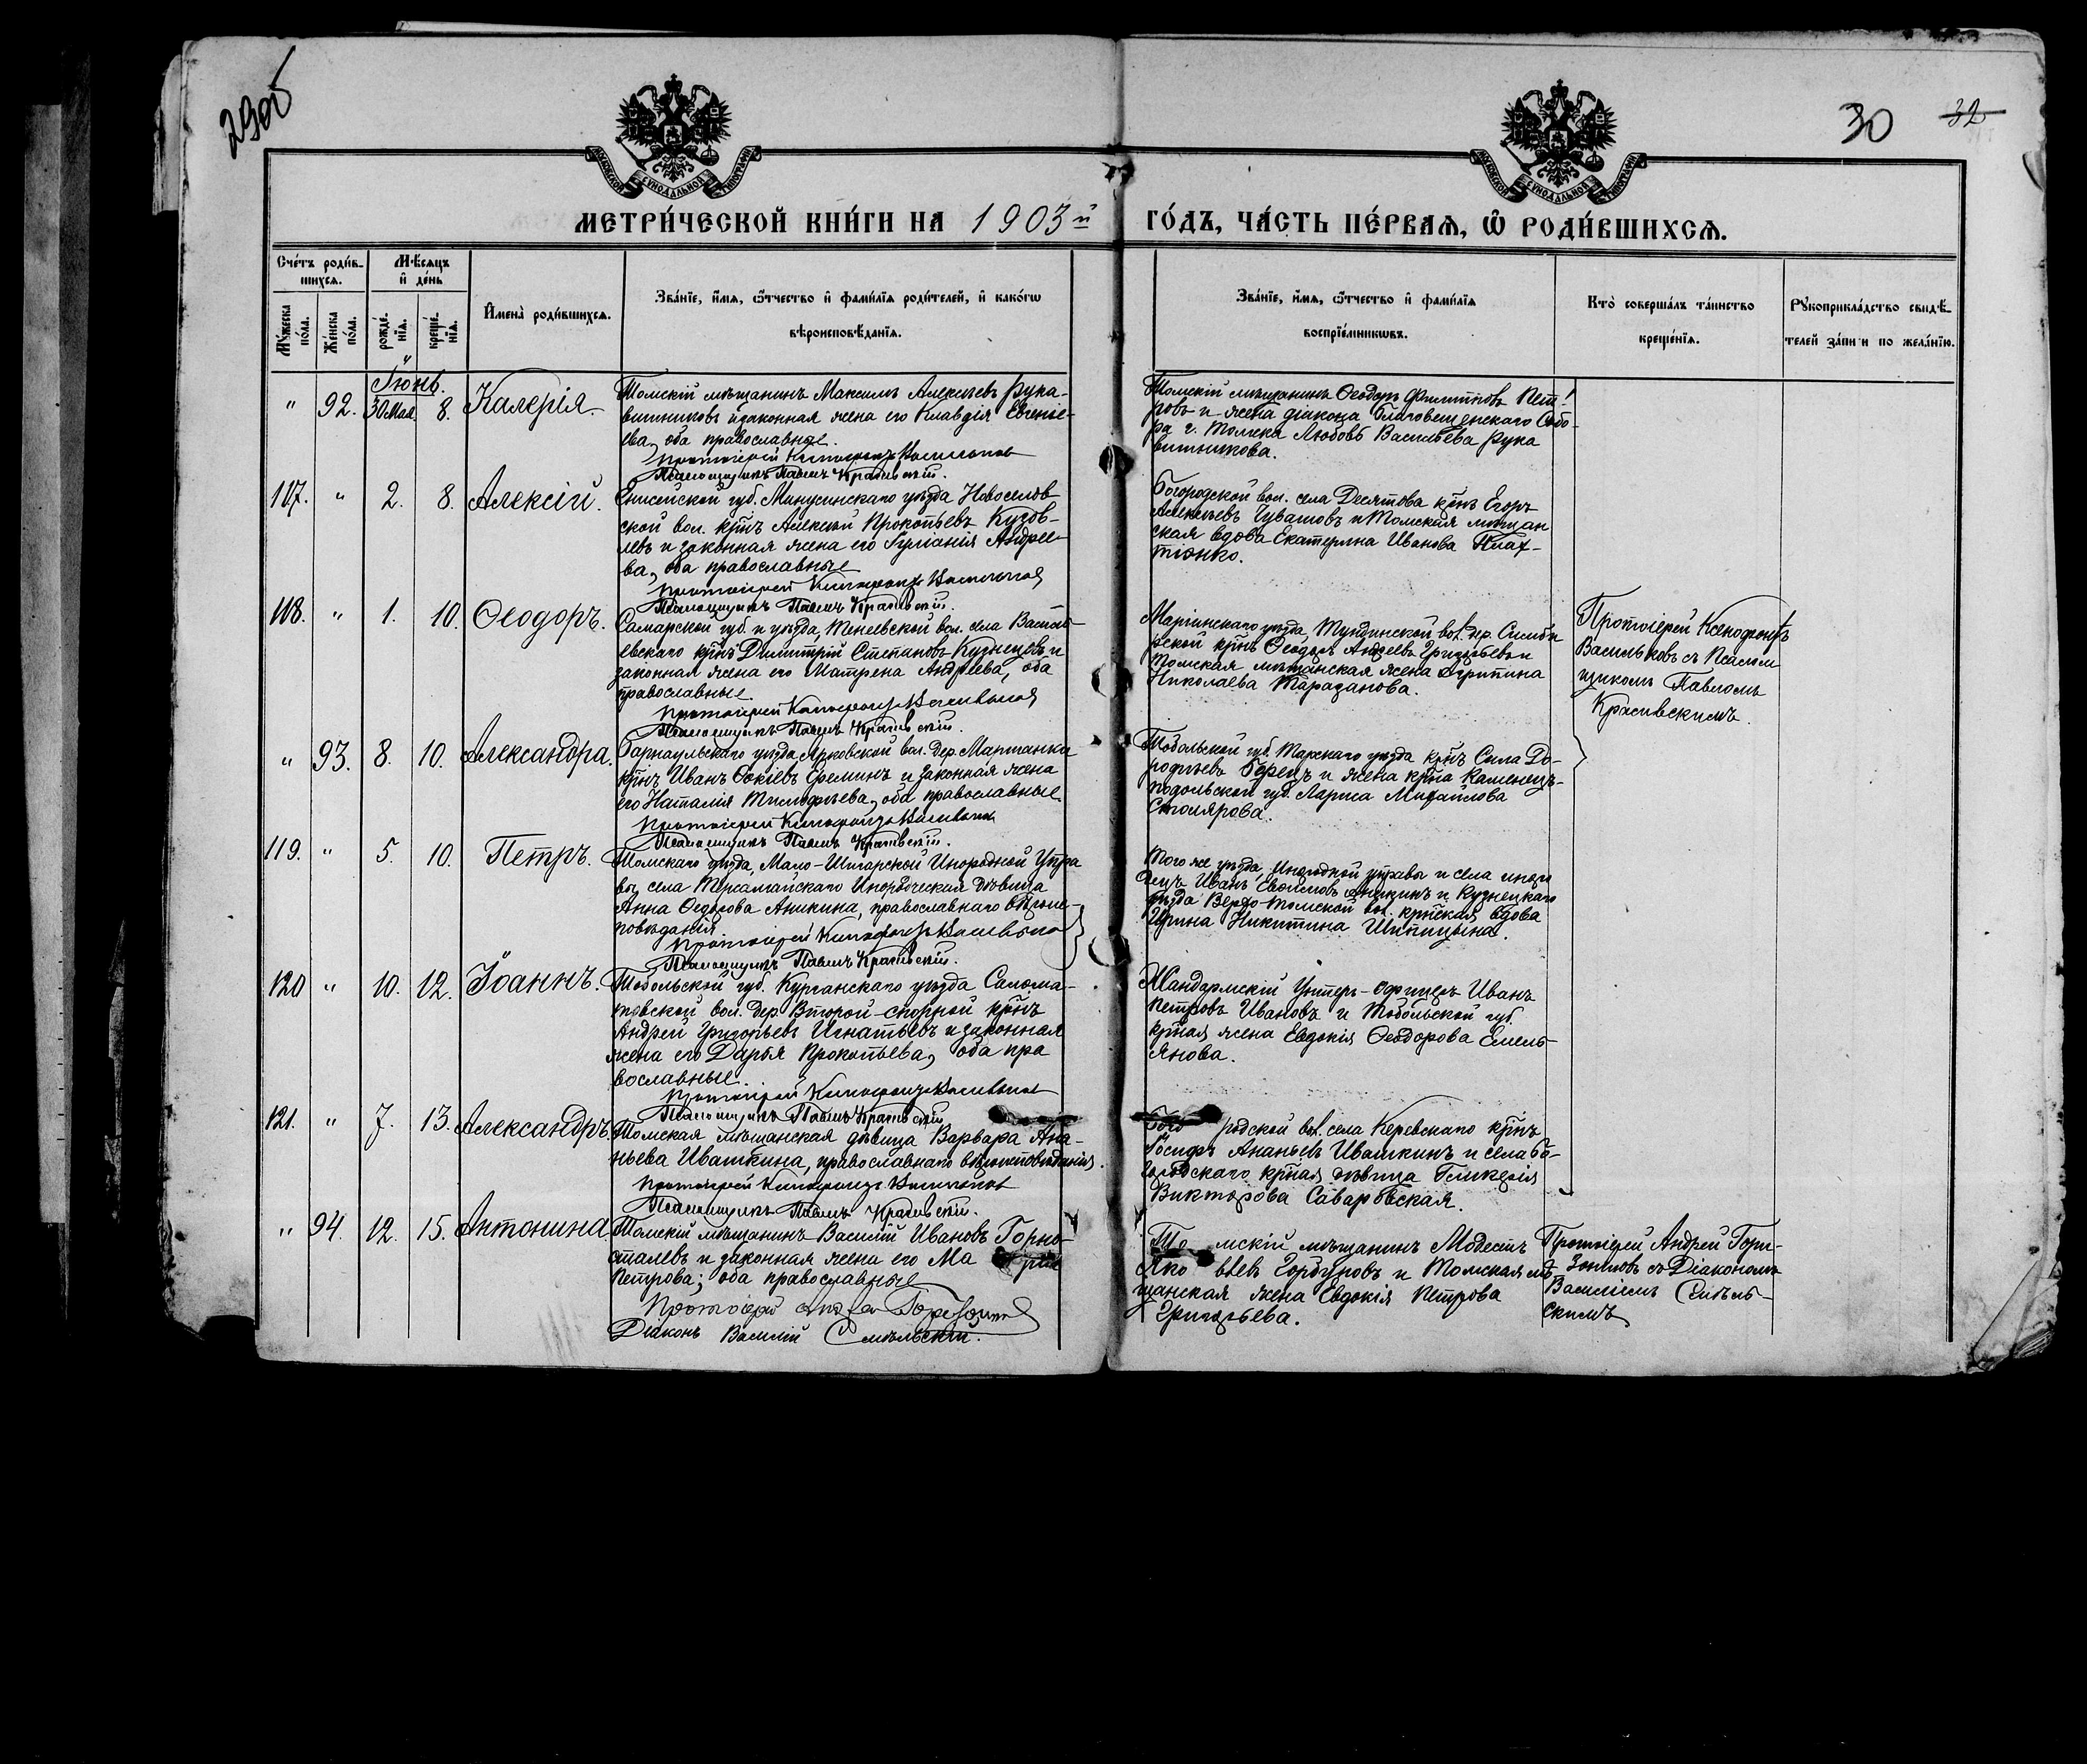 29об
30 32
МОСКОВСКОЙ СУНОДАЛЬНОЙ ТИПОГРАФІИ
МОСКОВСКОЙ СУНОДАЛЬНОЙ ТИПОГРАФІИ
МЕТРИ́ЧЕСКОЙ КНИ́ГИ НА 1903й
ГО́ДЪ, ЧА́СТЬ ПЕ́РВАѦ, Ѽ РОДИ́ВШИХСѦ.
Сче́тъ роди́в-
шихсѧ.
Мѣ́сѧцъ
и҆ де́нь
Мꙋ́жеска
по́ла.
Же́нска
по́ла.
рожде́-
нїѧ.
креще́-
нїѧ.
И҆мена̀ роди́вшихсѧ.
Зва́нїе, и҆́мѧ, ѻ҆́тчество и҆ фами́лїѧ роди́телей, и҆ како́гѡ
вѣроисповѣ́данїѧ.
Зва́нїе, и҆́мѧ, ѻ҆́тчество и҆ фами́лїѧ
воспрїе́мникѡвъ.
Кто̀ соверша́лъ та́инство
креще́нїѧ.
Рꙋкоприкла́дство свидѣ́-
телей за́писи по жела́нїю.
Іюнь.
" 92. 30 Мая. 8. Калерія.
Томскій мѣщанинъ Максимъ Алексѣевъ Рука-
вишниковъ и законная жена его Клавдія Евгеніе-
ева, оба православные.
Протоіерей Ксенофонтъ Васильковъ
Псаломщикъ Павелъ Красивскій.
Томскій мѣщанинъ Ѳеодоръ Филипповъ Пет-
ровъ и жена діакона Благовещенскаго Собо-
ра г. Томска Любовь Васильева Рука
вишникова.
117. " 2. 8. Алексій.
Енисейской губ. Минусинскаго уѣзда Новоселов
ской вол. крнъ Алексѣй Прокопьевъ Кузов-
левъ и законная жена его Іуліанія Андрее-
ва, оба православные
Протоіерей Ксенофонтъ Васильковъ
Псаломщикъ Павелъ Красивскій.
Богородской вол. села Десятова крнъ Егоръ
Алексѣевъ Чувашовъ и Томская мѣщан
ская вдова Екатерина Иванова
118. " 1. 10. Ѳеодоръ.
Самарской губ. и уѣзда, Теневской вол. села
евскаго крнъ Димитрій Степановъ Кузнецовъ и
законная жена его Матрена Андреева, оба
православные
Протоіерей Ксенофонтъ Васильковъ
Псаломщикъ Павелъ Красивскій.
Маріинскаго уѣзда, Тундинской вол. дер. Симби
рской крнъ Ѳеодоръ Андреевъ Григорьевъ и
Томская мѣщанская жена Агрипина
Николаева Тараданова.
Протоіерей Ксенофонтъ
Васильковъ съ Псалом
щикомъ Павломъ
Красивскимъ.
" 93. 8. 10. Александра.
Барнаульскаго уѣзда Ярковской вол. дер. Мартанка
крнъ Иванъ Фокіевъ Ереминъ и законная жена
его Наталія Тимофеева, оба православные
Протоіерей Ксенофонтъ Васильковъ
Псаломщикъ Павелъ Красивскій.
Тобольской губ. Тарскаго уѣзда крнъ Сила До-
рофѣевъ Береза и жена крна Каменецъ-
подольской губ. Лариса Михайлова
Столярова.
119. " 5. 10. Петръ.
Томскаго уѣзда, Мало-Шегарской Инородной Упра
вы, села Тызамайскаго Инородческая дѣвица
Анна Ѳедорова Аникина, православнаго вѣроис-
повѣданія
Протоіерей Ксенофонтъ Васильковъ
Псаломщикъ Павелъ Красивскій.
Того же уѣзда, инородной управы и села иноро
децъ Иванъ Евѳимовъ Аникинъ и Кузнецкаго
уѣзда Верхо-Томской вол. крнская вдова
Ирина Никитина Шипицына.
120 " 10. 12. Іоаннъ.
Тобольской губ. Курганскаго уѣзда Салома-
товской вол. дер. Второй-спорной крнъ
Андрей Григорьевъ Игнатьевъ и законная
жена его Дарья Прокопьева, оба пра
вославные.
Протоіерей Ксенофонтъ Васильковъ
Псаломщикъ Павелъ Красивскій
Жандармскій Унтеръ-офицеръ Иванъ
Петровъ Ивановъ и Тобольской губ
крная жена Евдокія Ѳеодорова Емель-
янова.
121. " 7. 13. Александръ.
Томская мѣщанская дѣвица Варвара Ана-
ньева Ивашкина, православнаго вѣроисповѣданія.
Протоіерей Ксенофонтъ Васильковъ
Псаломщикъ Павелъ Красивскій.
Бого родской вол. села Керевскаго крнъ
Іосифъ Ананьевъ Ивашкинъ и села Бо-
городскаго крная дѣвица Гликерія
Викторова Саваровская.
" 94. 12. 15. Антонина
Томскій мѣщанинъ Василій Ивановъ Горно-
сталевъ и законная жена его Ма рія
Петрова; оба православные
Протоіерей Андрей
Діаконъ Василій Смѣльскій.
То мскій мѣщанинъ Модестъ
Яко влевъ Горбуновъ и Томская мѣ-
щанская жена Евдокія Петрова
Григорьева.
Протоіерей Андрей
съ Діакономъ
Василіемъ Смѣль-
скимъ